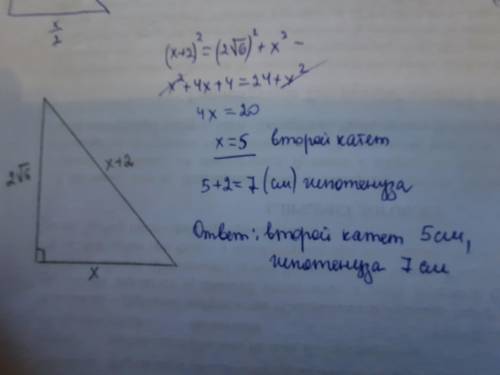 x/2
(x+2)² = (2√6)² + x² –
x² + 4x + 4 = 24 + x²
4x = 20
x = 5 второй катет
5+2=7 (см) гипотенуза
2√6
x+2
x
Ответ: второй катет 5см,
гипотенуза 7 см